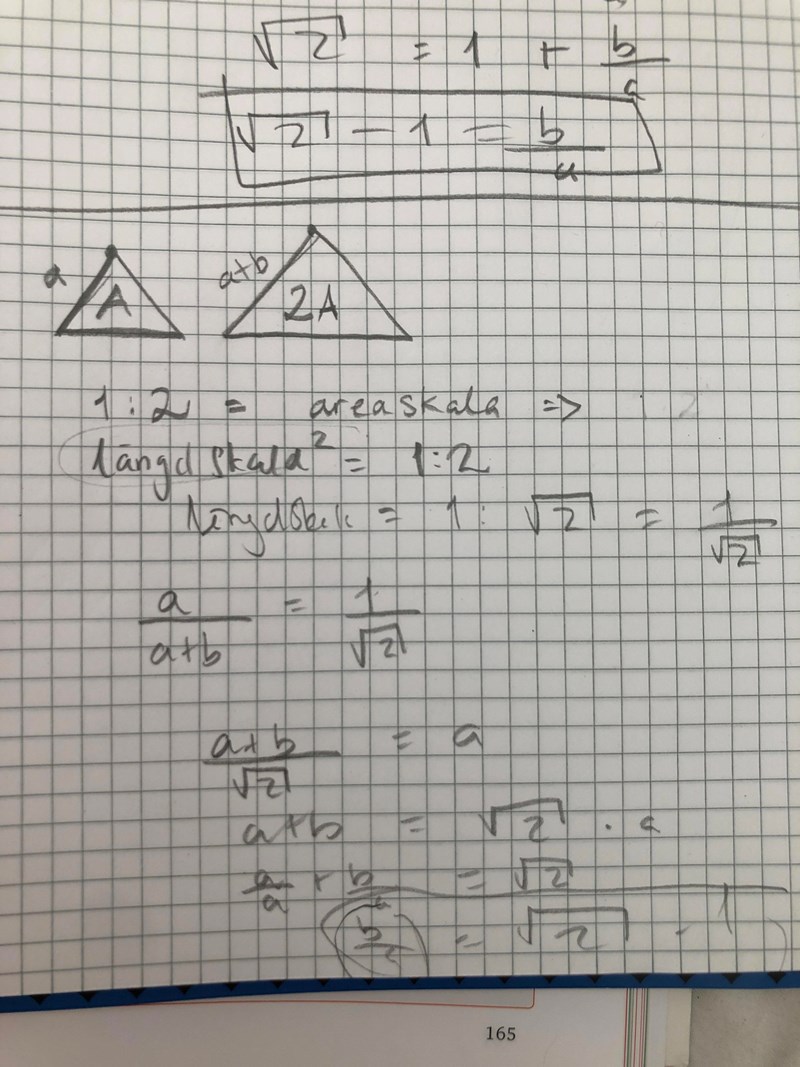 √2 = 1 + b/a
√2 - 1 = b/a
a A a+b 2A
1:2 = areaskala =>
längdskala² = 1:2
= 1: √2 = 1/√2
a/a+b = 1/√2
a+b/√2 = a
a+b = √2 · a
a/a + b/a = √2
b/a = √2 - 1
165